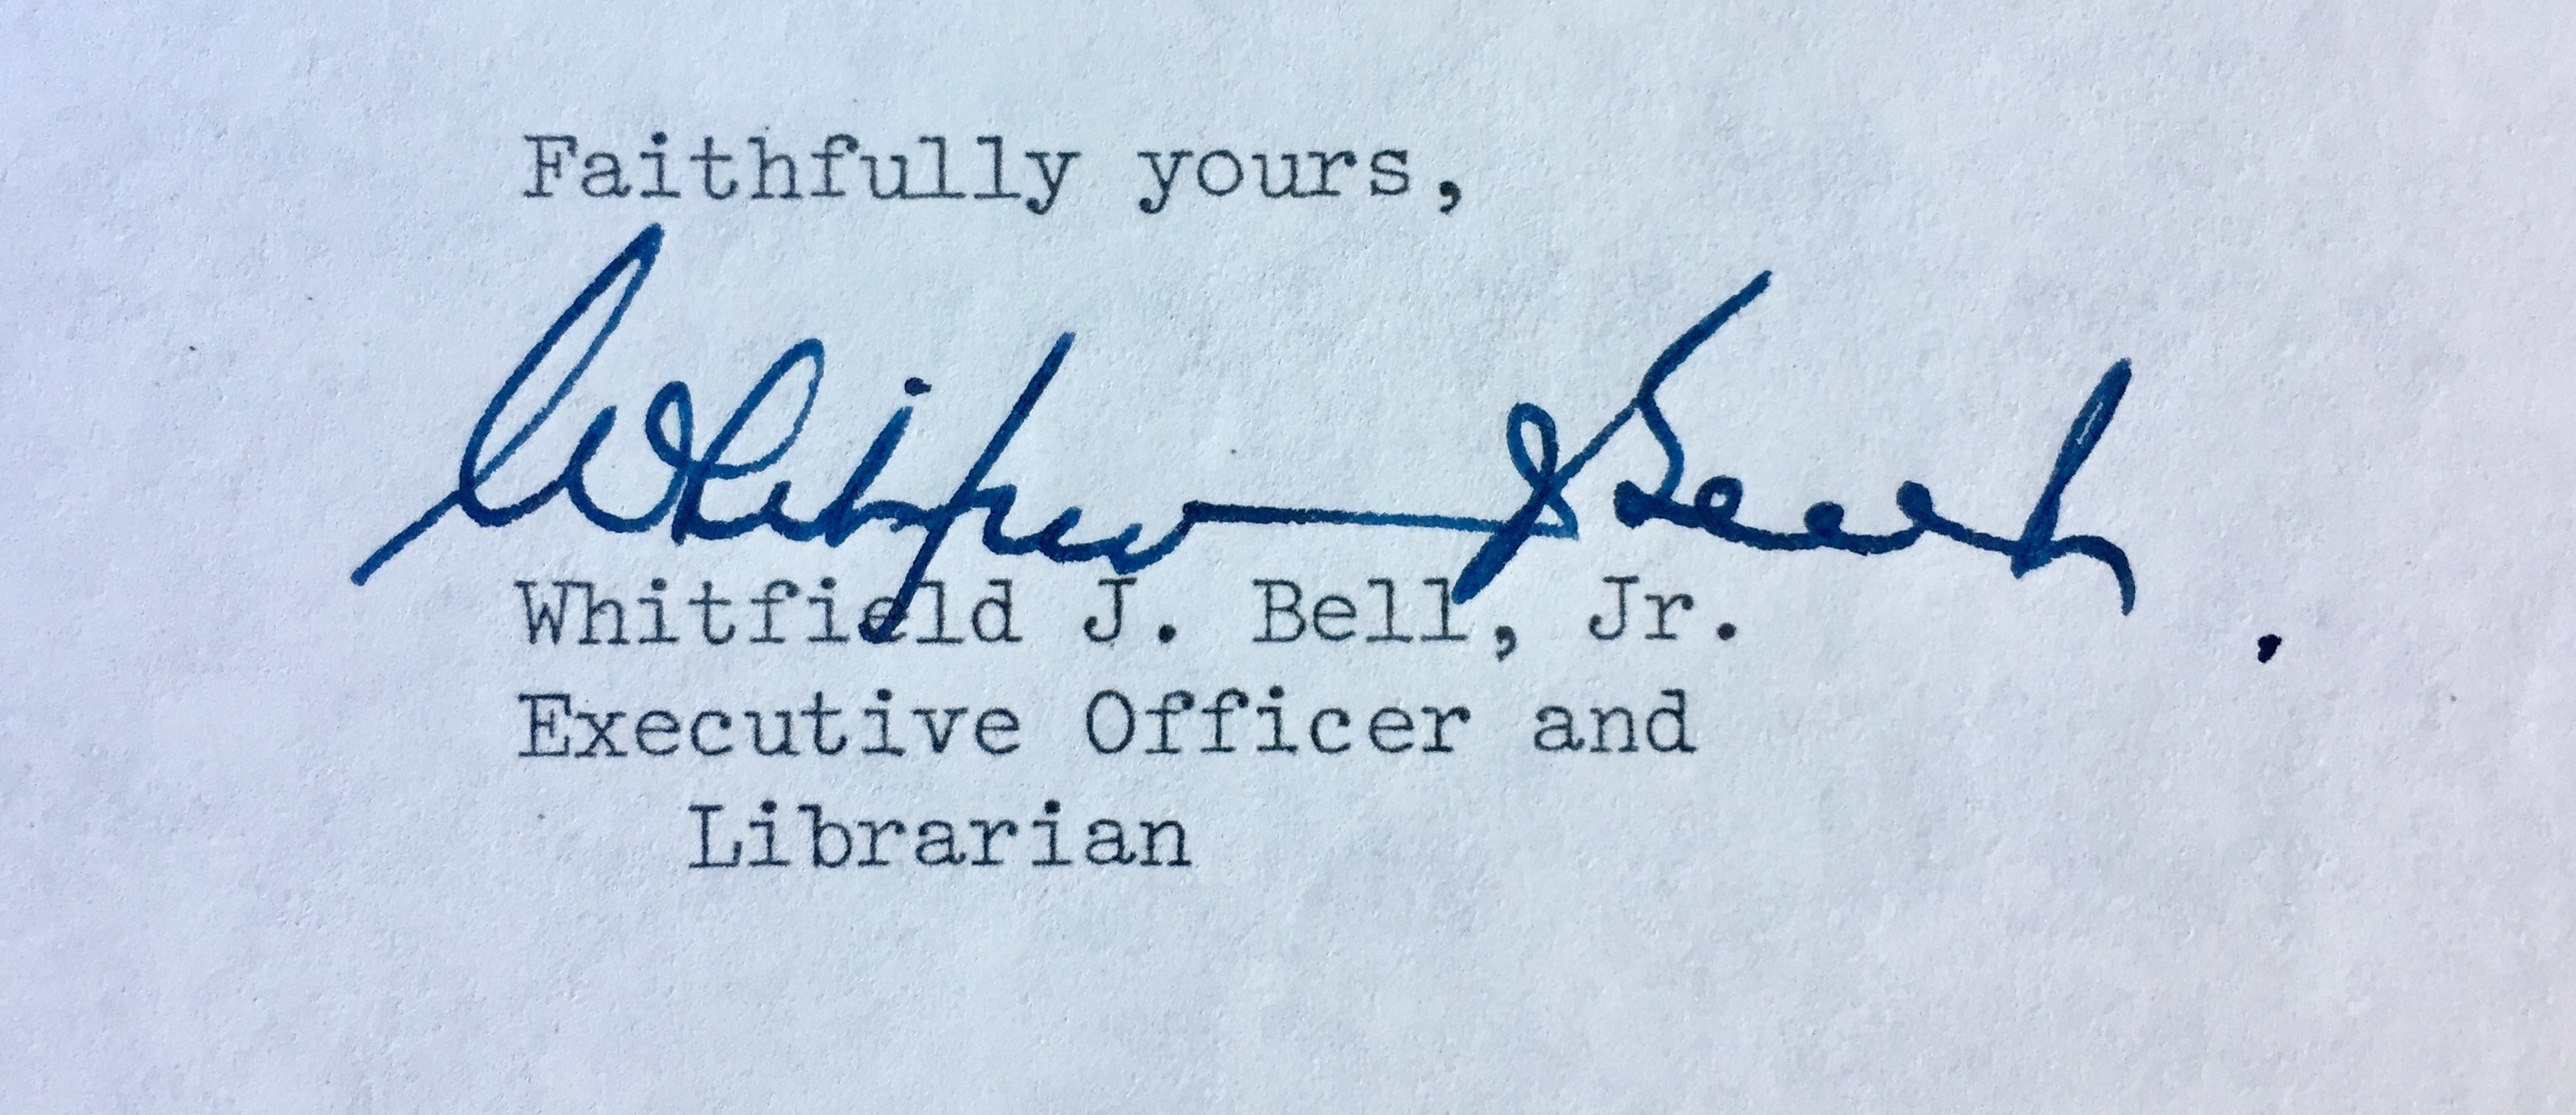 Faithfully yours,
Whitfield J. Bell, Jr.
Whitfield J. Bell, Jr.
Executive Officer and
Librarian